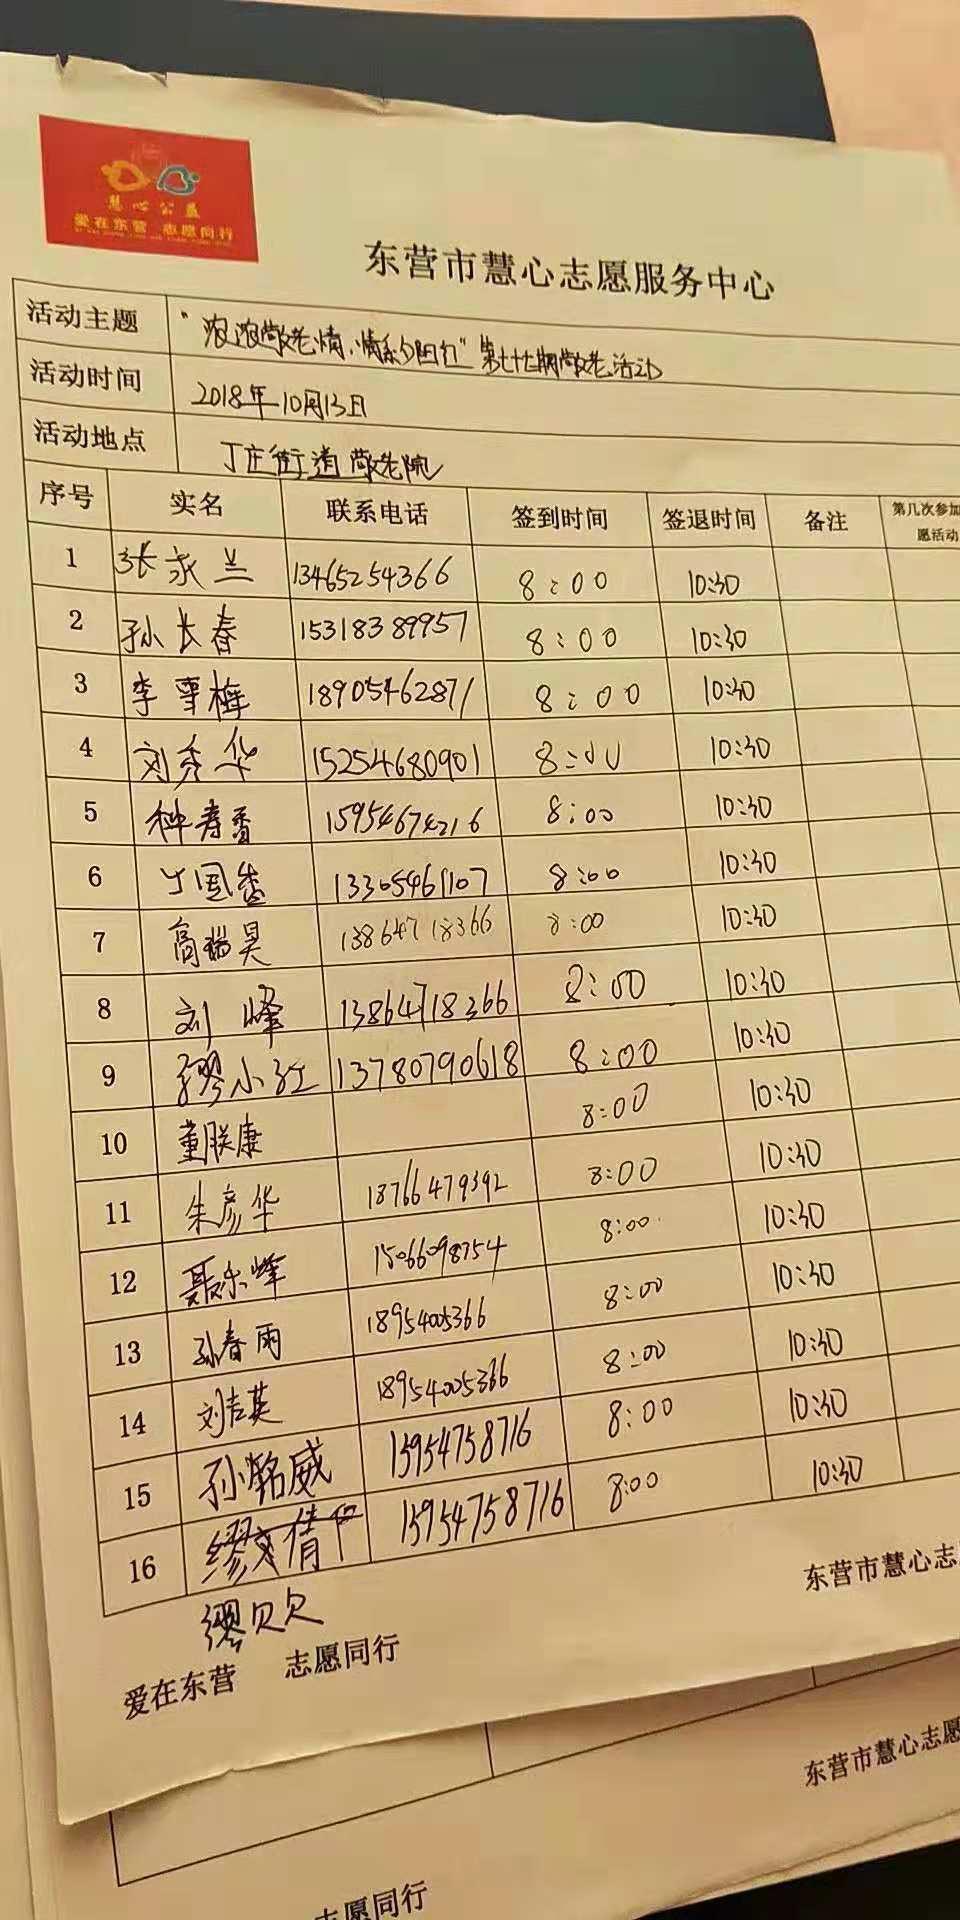 慧心公益
爱在东营 志愿同行
东营市慧心志愿服务中心
活动主题 "浓浓敬老情、情系夕阳红"第七十七期敬老活动
活动时间 2018年10月13日
活动地点 丁庄街道敬老院
序号 实名 联系电话 签到时间 签退时间 备注 第几次参加
愿活动
1 张永兰 13465254366 8:00 10:30
2 孙长春 15318389957 8:00 10:30
3 李雪梅 18905462871 8:00 10:30
4 刘秀华 15254680901 8:00 10:30
5 种寿香 15954674216 8:00 10:30
6 丁国香 13305461107 8:00 10:30
7 高瑞昊 13864718366 8:00 10:30
8 刘峰 13864718366 8:00 10:30
9 缪小红 13780790618 8:00 10:30
10 董朕康 8:00 10:30
11 朱彦华 18766479392 8:00 10:30
12 聂乐峰 15066098754 8:00 10:30
13 孙春雨 18954005366 8:00 10:30
14 刘吉英 18954005366 8:00 10:30
15 孙铭威 15954758716 8:00 10:30
16 15954758716 8:00 10:30
缪贝贝
东营市慧心志
爱在东营 志愿同行
东营市慧心志愿
志愿同行